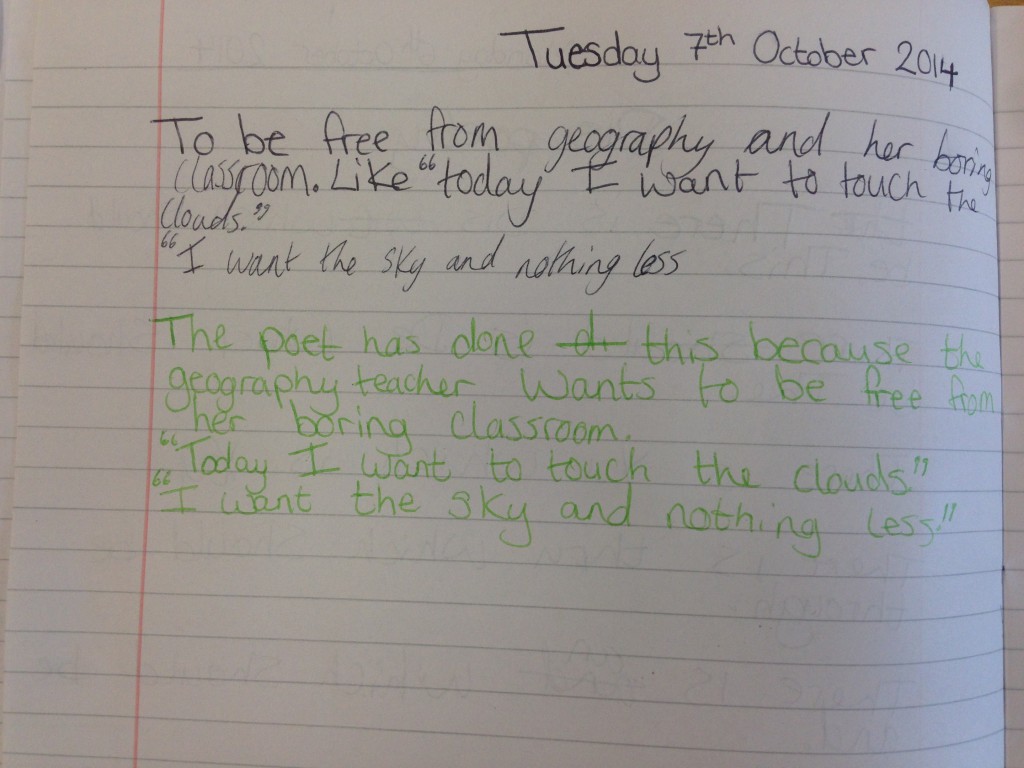 Tuesday 7th October 2014
To be free from geography and her boring
classroom. Like "today I want to touch the
clouds."
"I want the sky and nothing less
The poet has done this because the
geography teacher wants to be free from
her boring classroom.
"Today I want to touch the clouds"
"I want the sky and nothing less."